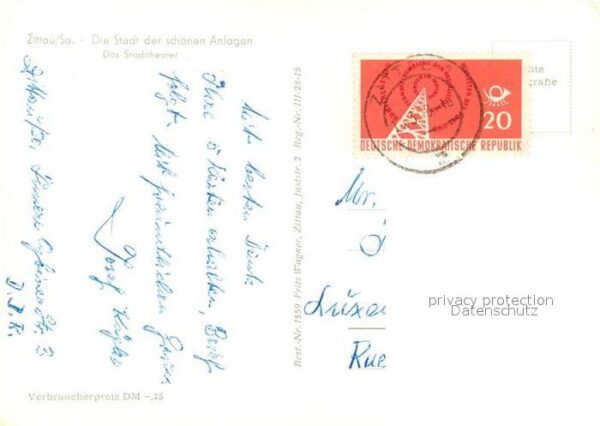 Zittau/Sa. - Die Stadt der schönen Anlagen
Das Stadttheater
Mit besten Dank
Ihre 5 Karten erhalten, Brief
folgt. Mit freundlichen Grüßen
Josef
Zittau/Sa. Innere Oybiner Str. 3
D.D.R.
Verbraucherpreis DM -,25
Best.-Nr. 1559 Fritz Wagner, Zittau, Juststr. 2 Reg.-Nr. III/28/15
chte
grafie
20
DEUTSCHE DEMOKRATISCHE REPUBLIK
Mr.
Luxe
Rue
privacy protection
Datenschutz